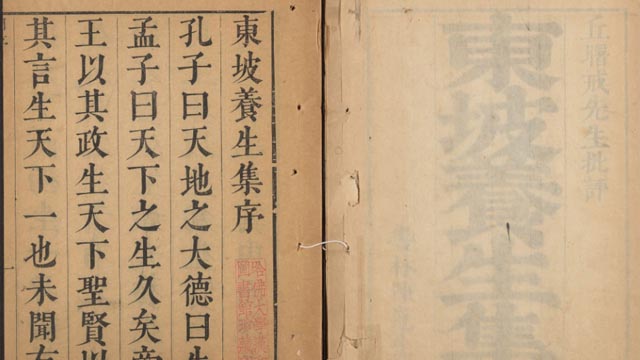 丘曙戒先生批評
東坡養生集
東坡養生集序
孔子曰天地之大德曰生
孟子曰天下之生久矣帝
王以其政生天下聖賢以
其言生天下一也未聞有
哈佛大學漢
圖書館珍藏